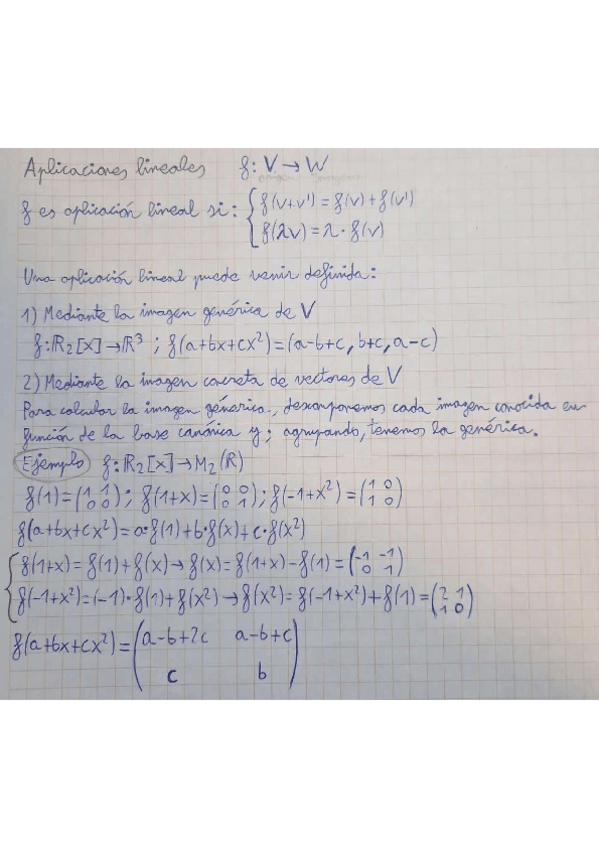 Aplicaciones lineales f: V → W
f es aplicación lineal si: { f(v+v') = f(v) + f(v')
f(λv) = λ · f(v)
Una aplicación lineal puede venir definida:
1) Mediante la imagen genérica de V
f: ℝ₂[x] → ℝ³ ; f(a+bx+cx²) = (a-b+c, b+c, a-c)
2) Mediante la imagen concreta de vectores de V
Para calcular la imagen génerica, descomponemos cada imagen conocida en
función de la base canónica y; agrupando, tenemos la genérica.
Ejemplo f: ℝ₂[x] → M₂(ℝ)
f(1) = (1 1; 0 0) ; f(1+x) = (0 0; 0 1) ; f(-1+x²) = (1 0; 1 0)
f(a+bx+cx²) = a·f(1) + b·f(x) + c·f(x²)
{ f(1+x) = f(1) + f(x) → f(x) = f(1+x) - f(1) = (-1 -1; 0 1)
f(-1+x²) = (-1)·f(1) + f(x²) → f(x²) = f(-1+x²) + f(1) = (2 1; 1 0)
f(a+bx+cx²) = (a-b+2c a-b+c
c b)